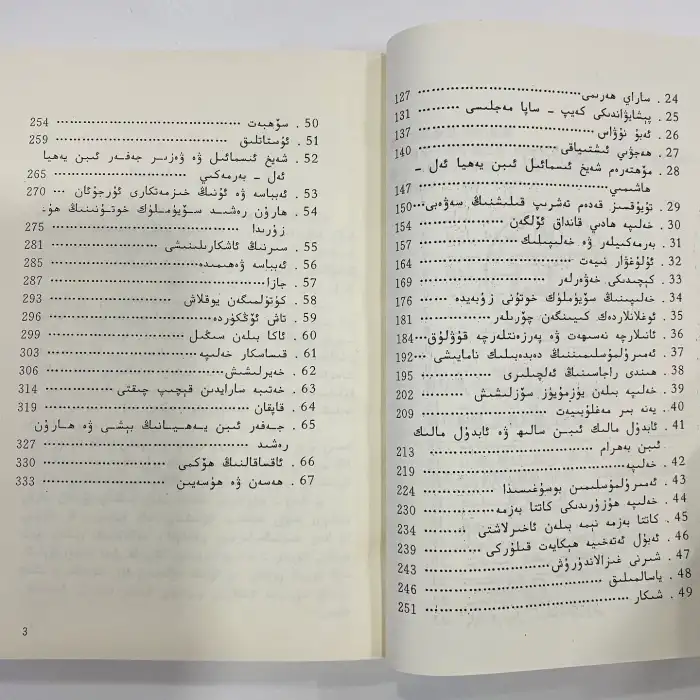 24 . ساراي ھەرىمى ········ 127
25 . پېشايۋاندىكى كەيپ - ساپا مەجلىسى ········ 131
26 . ئەبۇ نۇۋاس ········ 137
27 . ھەجۋىي ئىشتىياقى ········ 140
28 . مۆھتەرەم شەيخ ئىسمائىل ئىبىن يەھيا ئەل -
ھاشىمىي ········ 147
29 . تۇيۇقسىز قەدەم تەشرىپ قىلىشنىڭ سەۋەبى ·· 150
30 . خەلىپە ھادىي قانداق ئۆلگەن ········ 154
31 . بەرمەكىيلەر ۋە خەلىپىلىك ········ 157
32 . ئۇلۇغۋار نىيەت ········ 164
33 . كېچىدىكى خەۋەرلەر ········ 169
34 . خەلىپىنىڭ سۆيۈملۈك خوتۇنى زۇبەيدە ···· 176
35 . ئوغلانلاردەك كىيىنگەن چۆرىلەر ········ 181
36 . ئانىلارچە نەسىھەت ۋە پەرزەنتلەرچە قۇۋلۇق ···· 184
37 . ئەمىرۇلمۇسلىمىننىڭ دەبدەبىلىك نامايىشى ·· 192
38 . ھىندى راجاسىنىڭ ئەلچىلىرى ········ 195
39 . خەلىپە بىلەن يۈزمۇيۈز سۆزلىشىش ········ 202
40 . يەنە بىر مەغلۇبىيەت ········ 209
41 . ئابدۇل مالىك ئىبىن سالىھ ۋە ئابدۇل مالىك
ئىبىن بەھرام ········ 213
42 . خەلىپە ········ 219
43 . ئەمىرۇلمۇسلىمىن بوسۇغىسىدا ········ 224
44 . خەلىپە ھۇزۇرىدىكى كاتتا بەزمە ········ 230
45 . كاتتا بەزمە نېمە بىلەن ئاخىرلاشتى ········ 234
46 . ئەبۇل ئەتەخىيە ھېكايەت قىلۇركى ········ 239
47 . شىرنى غىزالاندۇرۇش ········ 243
48 . ياسالمىلىق ········ 246
49 . شىكار ········ 251
50 . سۆھبەت ········ 254
51 . ئۇستاتلىق ········ 259
52 . شەيخ ئىسمائىل ۋە ۋەزىر جەفەر ئىبىن يەھيا
ئەل - بەرمەكىي ········ 265
53 . ئەبباسە ۋە ئۇنىڭ خىزمەتكارى ئۇرجۇئان ··· 270
54 . ھارۇن رەشىد سۆيۈملۈك خوتۇنىنىڭ ھۇ-
زۇرىدا ········ 275
55 . سىرنىڭ ئاشكارىلىنىشى ········ 281
56 . ئەبباسە ۋەھىمىدە ········ 285
57 . جازا ········ 287
58 . كۈتۈلمىگەن يوقلاش ········ 293
59 . تاش ئۆڭكۈردە ········ 296
60 . ئاكا بىلەن سىڭىل ········ 299
61 . قىساسكار خەلىپە ········ 303
62 . خەيرلىشىش ········ 306
63 . خەتىبە سارايدىن قېچىپ چىقتى ········ 314
64 . قاپقان ········ 319
65 . جەفەر ئىبىن يەھيانىڭ بېشى ۋە ھارۇن
رەشىد ········ 327
66 . ئاقساقالنىڭ ھۆكمى ········ 330
67 . ھەسەن ۋە ھۈسەيىن ········ 333
3